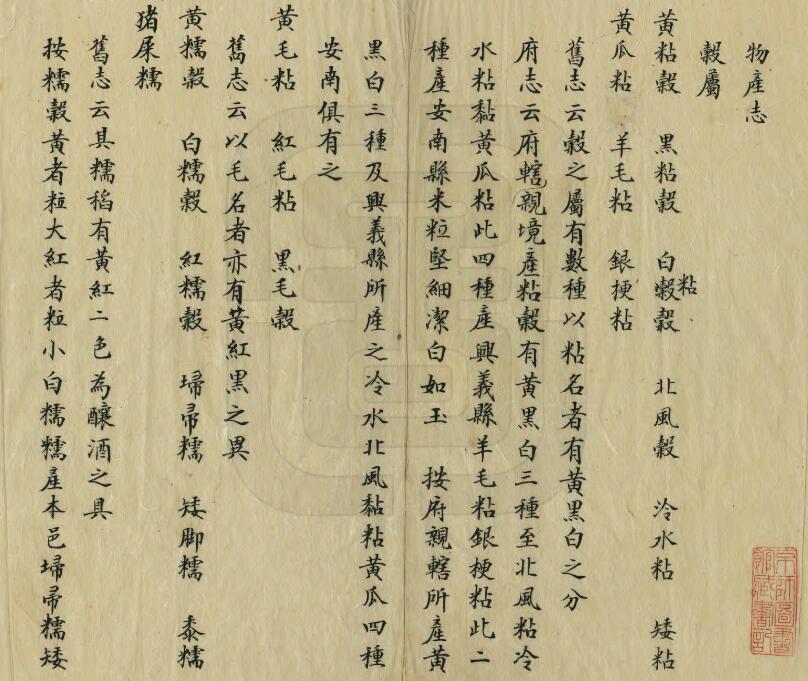 物產志
穀屬
黃粘穀　黑粘穀　白穀粘穀　北風穀　泠水粘　矮粘
黃瓜粘　羊毛粘　銀梗粘
舊志云穀之屬有數種以粘名者有黃黑白之分
府志云府轄親境產粘穀有黃黑白三種至北風粘冷
水粘黏黃瓜粘此四種產興義縣羊毛粘銀梗粘此二
種產安南縣米粒堅細潔白如玉　按府親轄所產黃
黑白三種及興義縣所產之冷水北風黏粘黃瓜四種
安南俱有之
黃毛粘　紅毛粘　黑毛穀
舊志云以毛名者亦有黃紅黑之異
黃糯穀　白糯穀　紅糯穀　埽帚糯　矮脚糯　黍糯
猪屎糯
舊志云其糯稻有黃紅二色為釀酒之具
按糯穀黃者粒大紅者粒小白糯糯產本邑埽帚糯矮